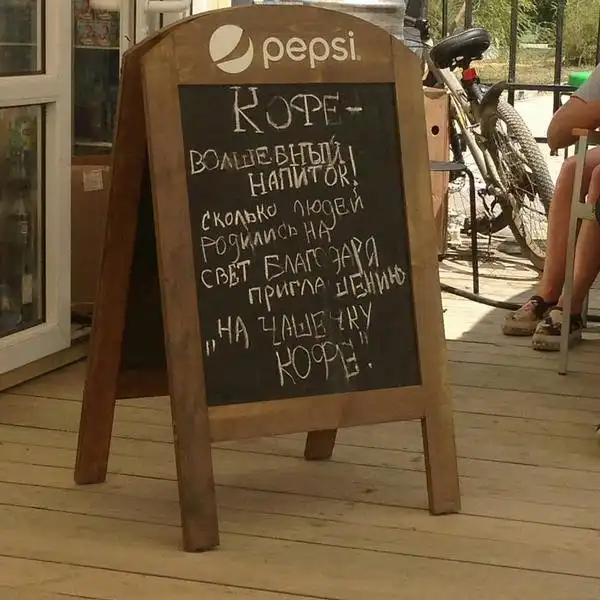 pepsi
КОФЕ-
ВОЛШЕБНЫЙ
НАПИТОК!
СКОЛЬКО ЛЮДЕЙ
РОДИЛИСЬ НА
СВЕТ БЛАГОДАРЯ
ПРИГЛАШЕНИЮ
„НА ЧАШЕЧКУ
КОФЕ".